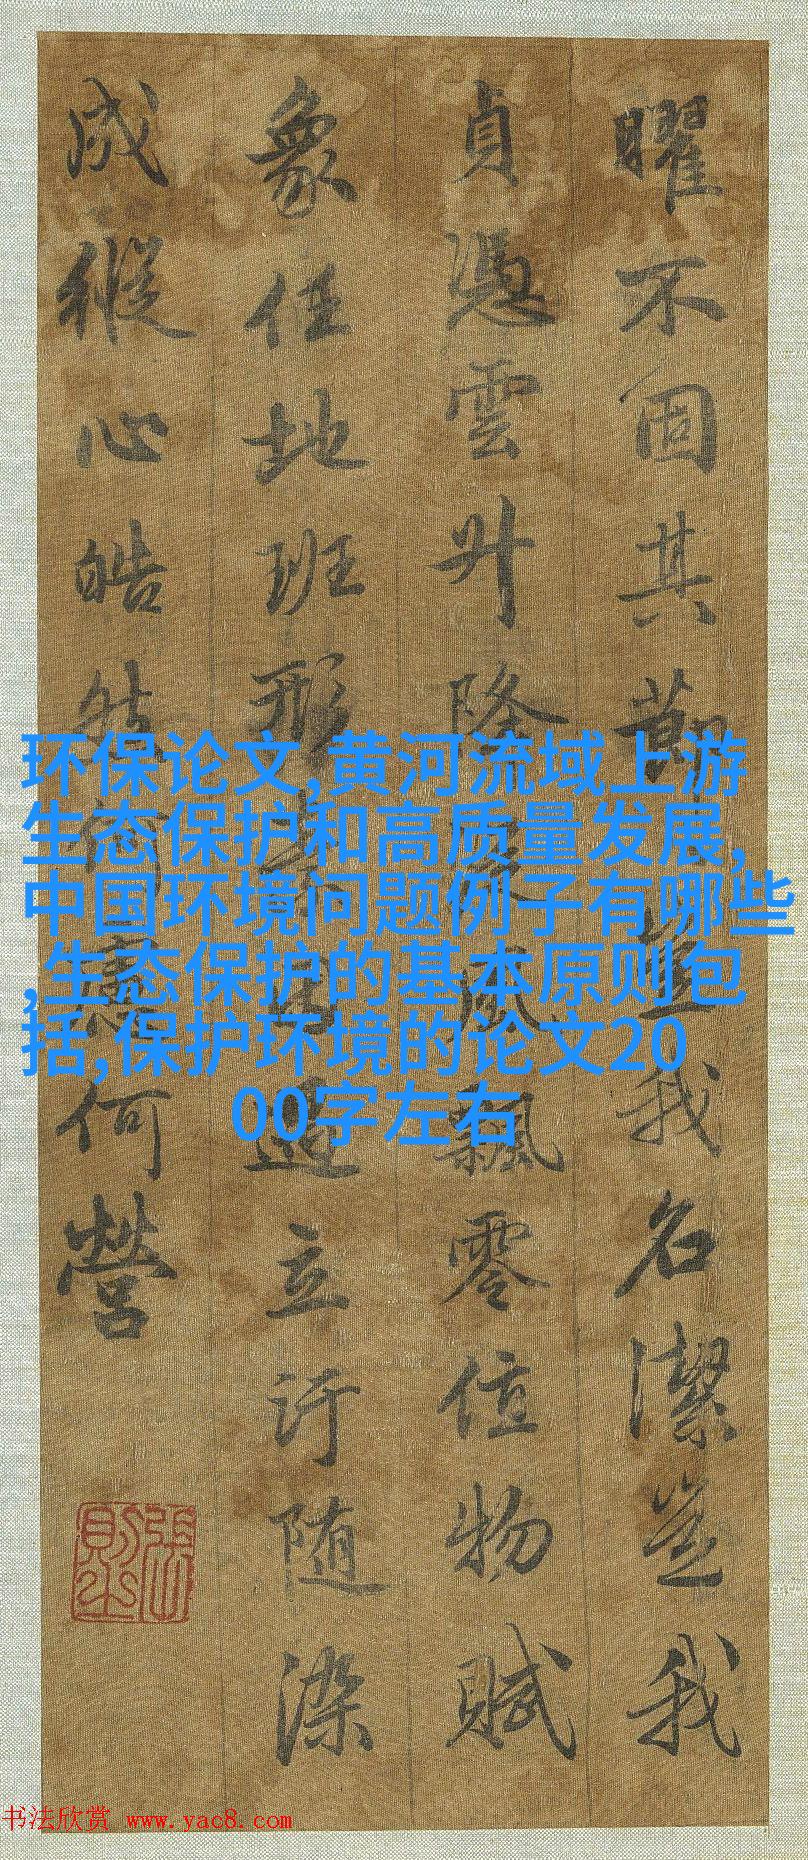 曜不固其節豈我名潔豈我
貞憑雲升降從風飄零值物賦
象任地班形素因遇立汙隨染
成縱心皓然何慮何營
張則之
环保论文,黄河流域上游
生态保护和高质量发展,
中国环境问题例子有哪些
,生态保护的基本原则包
括,保护环境的论文20
00字左右
书法欣赏 www.yac8.com